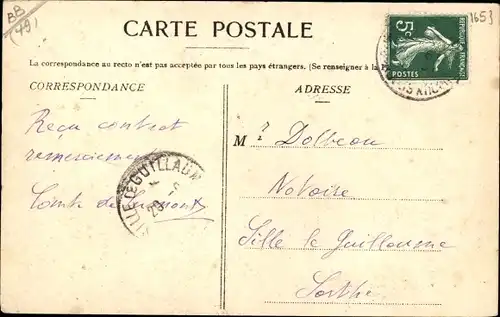 BB
(49)
1653
CARTE POSTALE
La correspondance au recto n'est pas acceptée par tous les pays étrangers. (Se renseigner à la
CORRESPONDANCE
ADRESSE
5c
POSTES
Reçu contrat
remerciements
Comte de
SILLE LE GUILLAUME
M. Dolbeau
Notaire
Sille le Guillaume
Sarthe